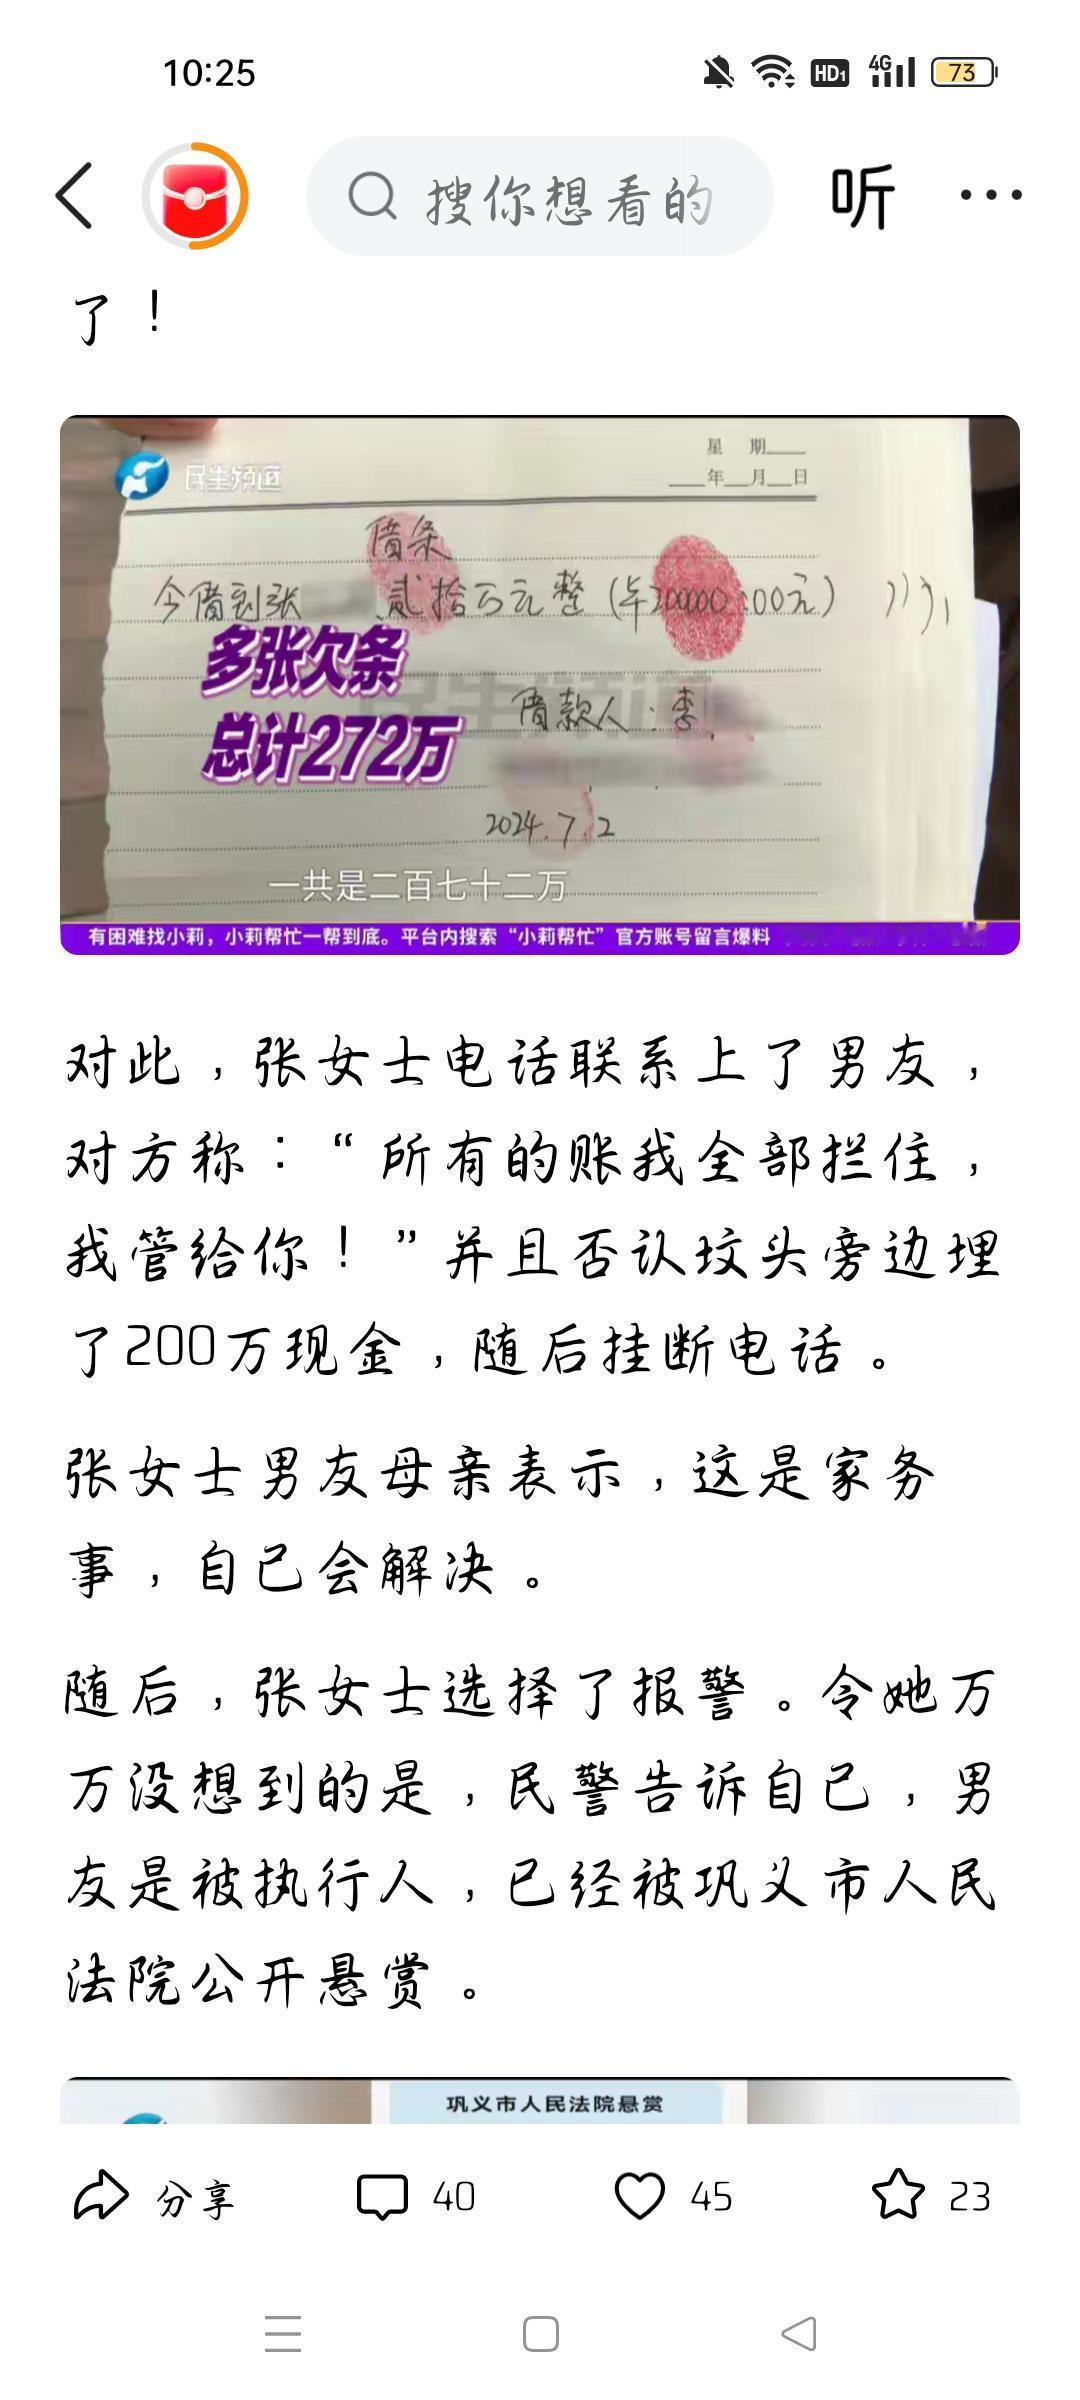 10:25
HD1 4G 73
搜你想看的
听
了！
民生频道
星 期
年 月 日
借条
今借到张
贰拾万元整
00元）
多张欠条
总计272万
借款人：李
2024.7.2
一共是二百七十二万
有困难找小莉，小莉帮忙一帮到底。平台内搜索“小莉帮忙”官方账号留言爆料
对此，张女士电话联系上了男友，
对方称：“所有的账我全部拦住，
我管给你！”并且否认坟头旁边埋
了200万现金，随后挂断电话。
张女士男友母亲表示，这是家务
事，自己会解决。
随后，张女士选择了报警。令她万
万没想到的是，民警告诉自己，男
友是被执行人，已经被巩义市人民
法院公开悬赏。
巩义市人民法院悬赏
分享
40
45
23